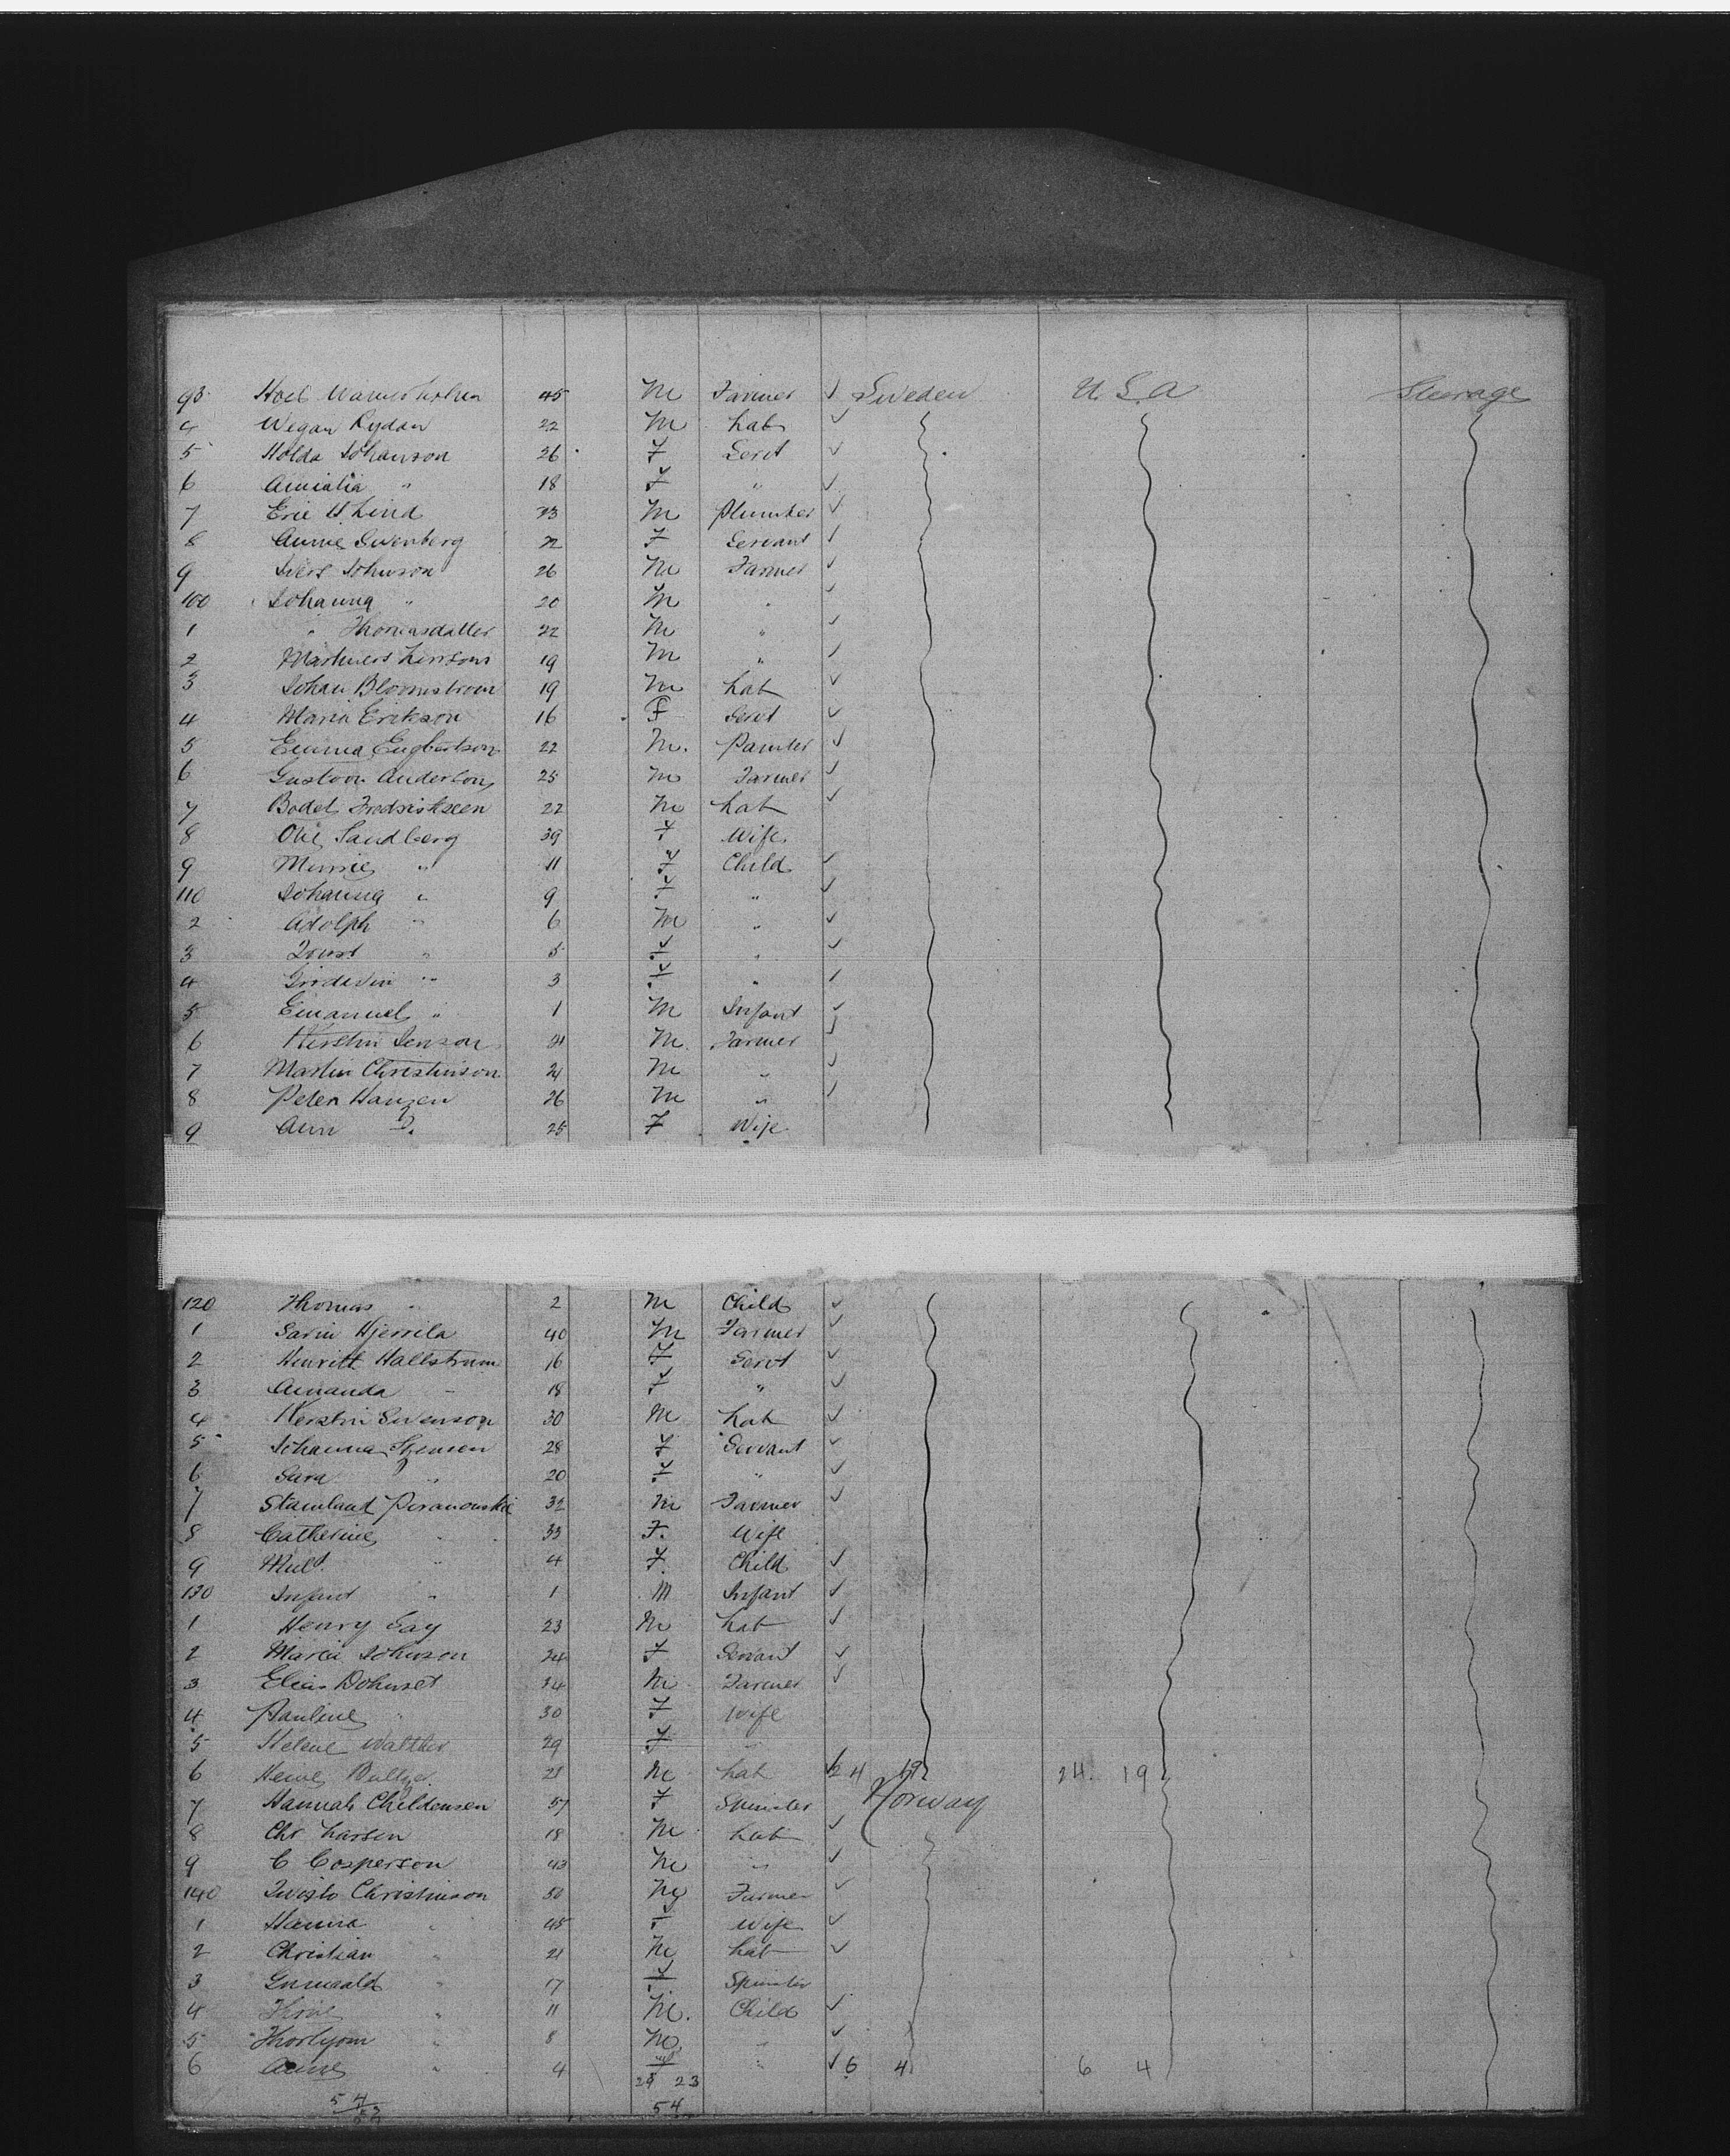 93 45 M Farmer ✓ Sweden U S A Steerage
4 Wegan Rydan 22 M Lab ✓
5 Holda Johanson 26 F Servt ✓
6 Amialia " 18 F " ✓
7 Eric H Lind 23 M Plumber ✓
8 Annie Swenberg 22 F Servant ✓
9 Johnson 26 M Farmer ✓
100 Johanna " 20 M " ✓
1 " Thomasdatter 22 M " ✓
2 19 M " ✓
3 Johan Blomstrom 19 M Lab ✓
4 Maria Erikson 16 F Servt ✓
5 Emma Engbertson 22 M. Painter ✓
6 Gustoon Anderson 25 M Farmer ✓
7 Bodel Fredrikseen 22 M Lab ✓
8 Ole Sandberg 39 F Wife
9 Minnie " 11 F Child ✓
110 Johanna " 9 F " ✓
2 Adolph " 6 M " ✓
3 " 5 F " ✓
4 " 3 F " ✓
5 Emanuel " 1 M Infant ✓
6 Kerstin Jenson 21 M Farmer ✓
7 Martin Christinson 21 M " ✓
8 Peter Hanzen 26 M " ✓
9 Ann D. 25 F Wife
120 Thomas " 2 M Child ✓
1 Sarin Hjerrila 40 M Farmer ✓
2 Henritt Hallstrum 16 F Servt ✓
3 Amanda " 18 F " ✓
4 Kerstin Swenson 30 M Lab ✓
5 Johanna 28 F Servant ✓
6 Sara " 20 F " ✓
7 32 M Farmer ✓
8 Catherine " 33 F. Wife
9 " 4 F. Child ✓
130 Infant " 1 M Infant ✓
1 Henry Eay 23 M Lab ✓
2 Maria Johnson 24 F Servant ✓
3 Elias Dohnset 34 M Farmer ✓
4 Pauline " 30 F Wife
5 Helene Walther 29 F "
6 21 M Lab 24 19 24. 19
7 Hannah Childensen 57 F Spinster Norway
8 Chr Larsen 18 M Lab ✓
9 C Cosperson 43 M " ✓
140 Christinson 50 M Farmer ✓
1 Hanna " 45 F Wife ✓
2 Christian " 21 M Lab ✓
3 " 17 F Spinster
4 " 11 M. Child ✓
5 " 8 M " ✓
6 Anne " 4 F " ✓ 6 4 6 4
29 23
54 54